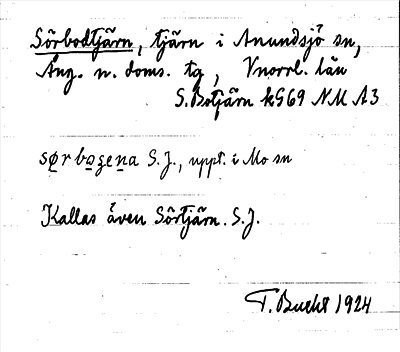 Sörbodtjärn, tjärn i Anundsjö sn,
Ång. n. doms. tg, Vnorrl. län
S. Botjärn kS69 NM A3
sørbozena S.J., uppt. i Mo sn
Kallas även Sörtjärn. S.J.
T. Bucht 1924